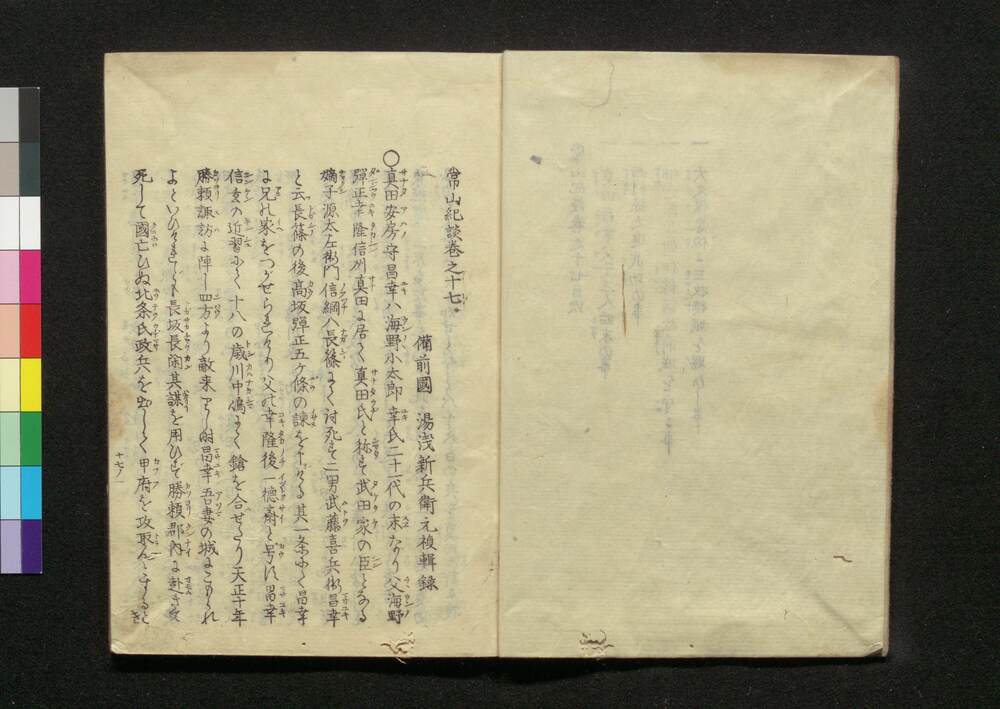 常山紀談巻之十七
備前國 湯浅新兵衛元禎輯録
〇真田安房守昌幸ハ海野小太郎幸氏二十一代の末なり父海野
弾正幸隆信州真田に居て真田氏と称す武田家の臣となる
嫡子源太左衛門信綱ハ長篠にて討死す二男武藤喜兵衛昌幸
と云長篠の後高坂弾正五ケ條の諌を其一条にて昌幸
に兄の家をつがせられけり父の幸隆後一徳斎と号す昌幸
信玄の近習にて十八の歳川中嶋にて鎗を合せたり天正十年
勝頼諏訪に陣し四方より敵来りし時昌幸吾妻の城にこもられ
よといひけれども長坂長閑其謀を用ひず勝頼郡内に赴き
死して國亡ひぬ北条氏政兵を出して甲府を攻取んとすると
十七ノ一